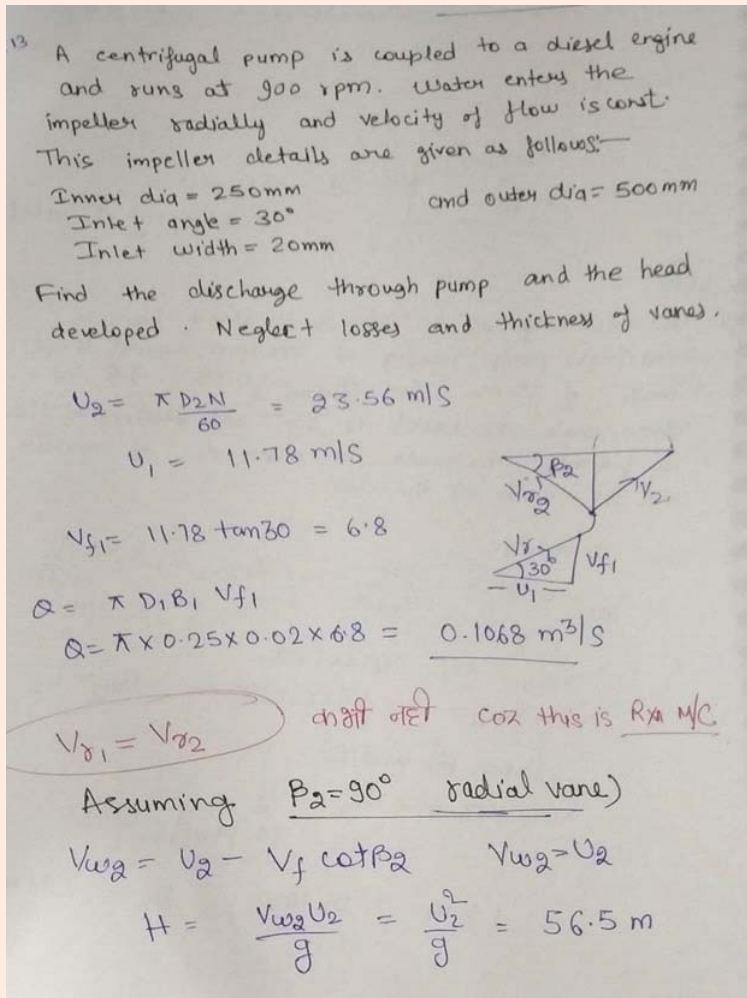 13
A centrifugal pump is coupled to a diesel engine
and runs at 900 rpm. Water enters the
impeller radially and velocity of flow is const.
This impeller details are given as follows:—
Inner dia = 250mm and outer dia = 500mm
Inlet angle = 30°
Inlet width = 20mm
Find the discharge through pump and the head
developed. Neglect losses and thickness of vanes.
U2 = πD2N/60 = 23.56 m/s
U1 = 11.78 m/s
β2
Vr2
V2
Vf1 = 11.78 tan30 = 6.8
Vr
30°
Vf1
U1
Q = π D1 B1 Vf1
Q = π × 0.25 × 0.02 × 6.8 = 0.1068 m³/s
Vr1 = Vr2 कभी नही coz this is Rxn M/C
Assuming β2 = 90° radial vane)
Vw2 = U2 - Vf cotβ2 Vw2 = U2
H = Vw2U2/g = U2²/g = 56.5 m